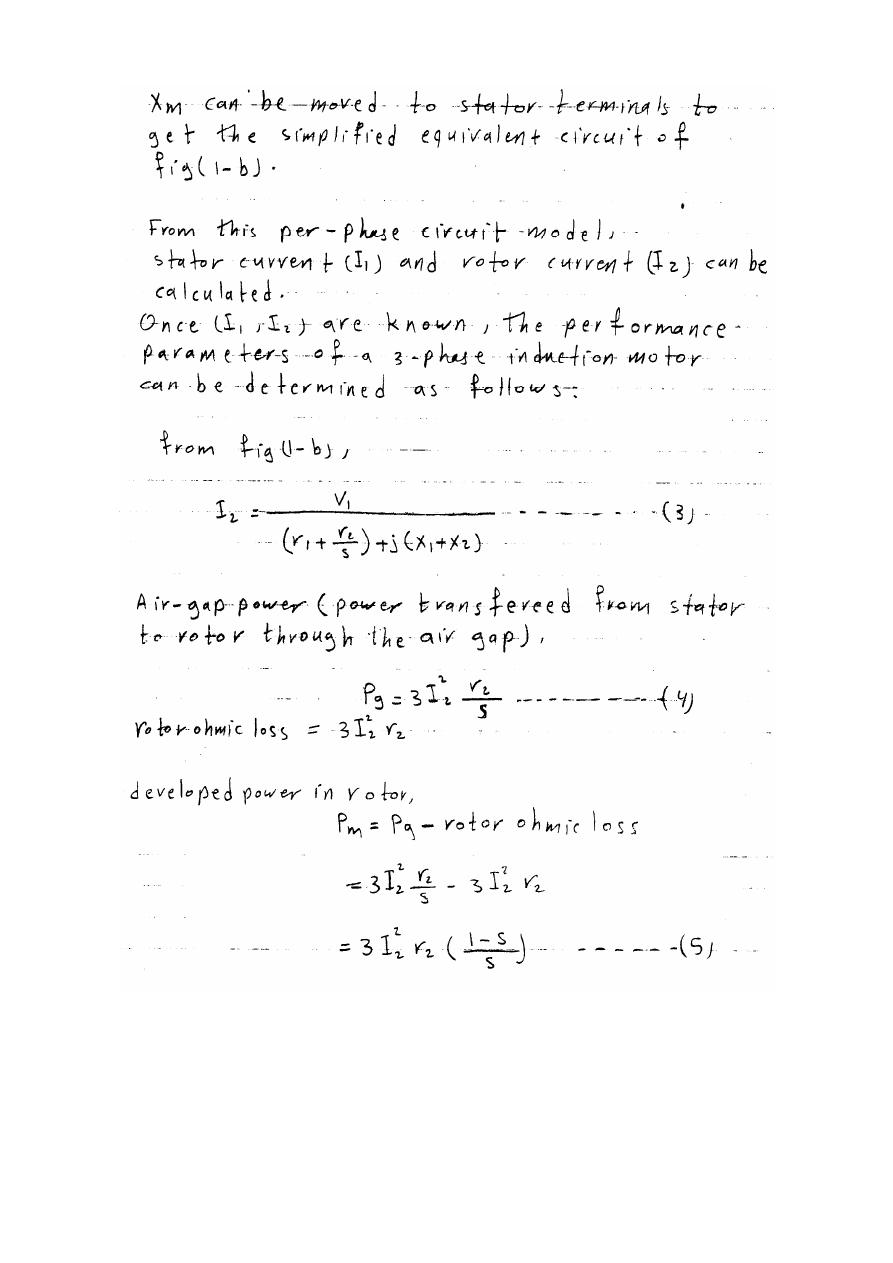 Xm can be moved to stator terminals to
get the simplified equivalent circuit of
fig(1-b).
From this per-phase circuit model,
stator current (I₁) and rotor current (I₂) can be
calculated.
Once (I₁, I₂) are known, the performance
parameters of a 3-phase induction motor
can be determined as follows:
from fig(1-b),
I₂ = V₁ / ((r₁ + r₂/s) + j(x₁+x₂)) --------(3)
Air-gap power (power transfereed from stator
to rotor through the air gap),
Pg = 3I₂² r₂/s ------------(4)
rotor ohmic loss = 3I₂² r₂
developed power in rotor,
Pm = Pg - rotor ohmic loss
= 3I₂² r₂/s - 3I₂² r₂
= 3I₂² r₂ ((1-s)/s) -------(5)